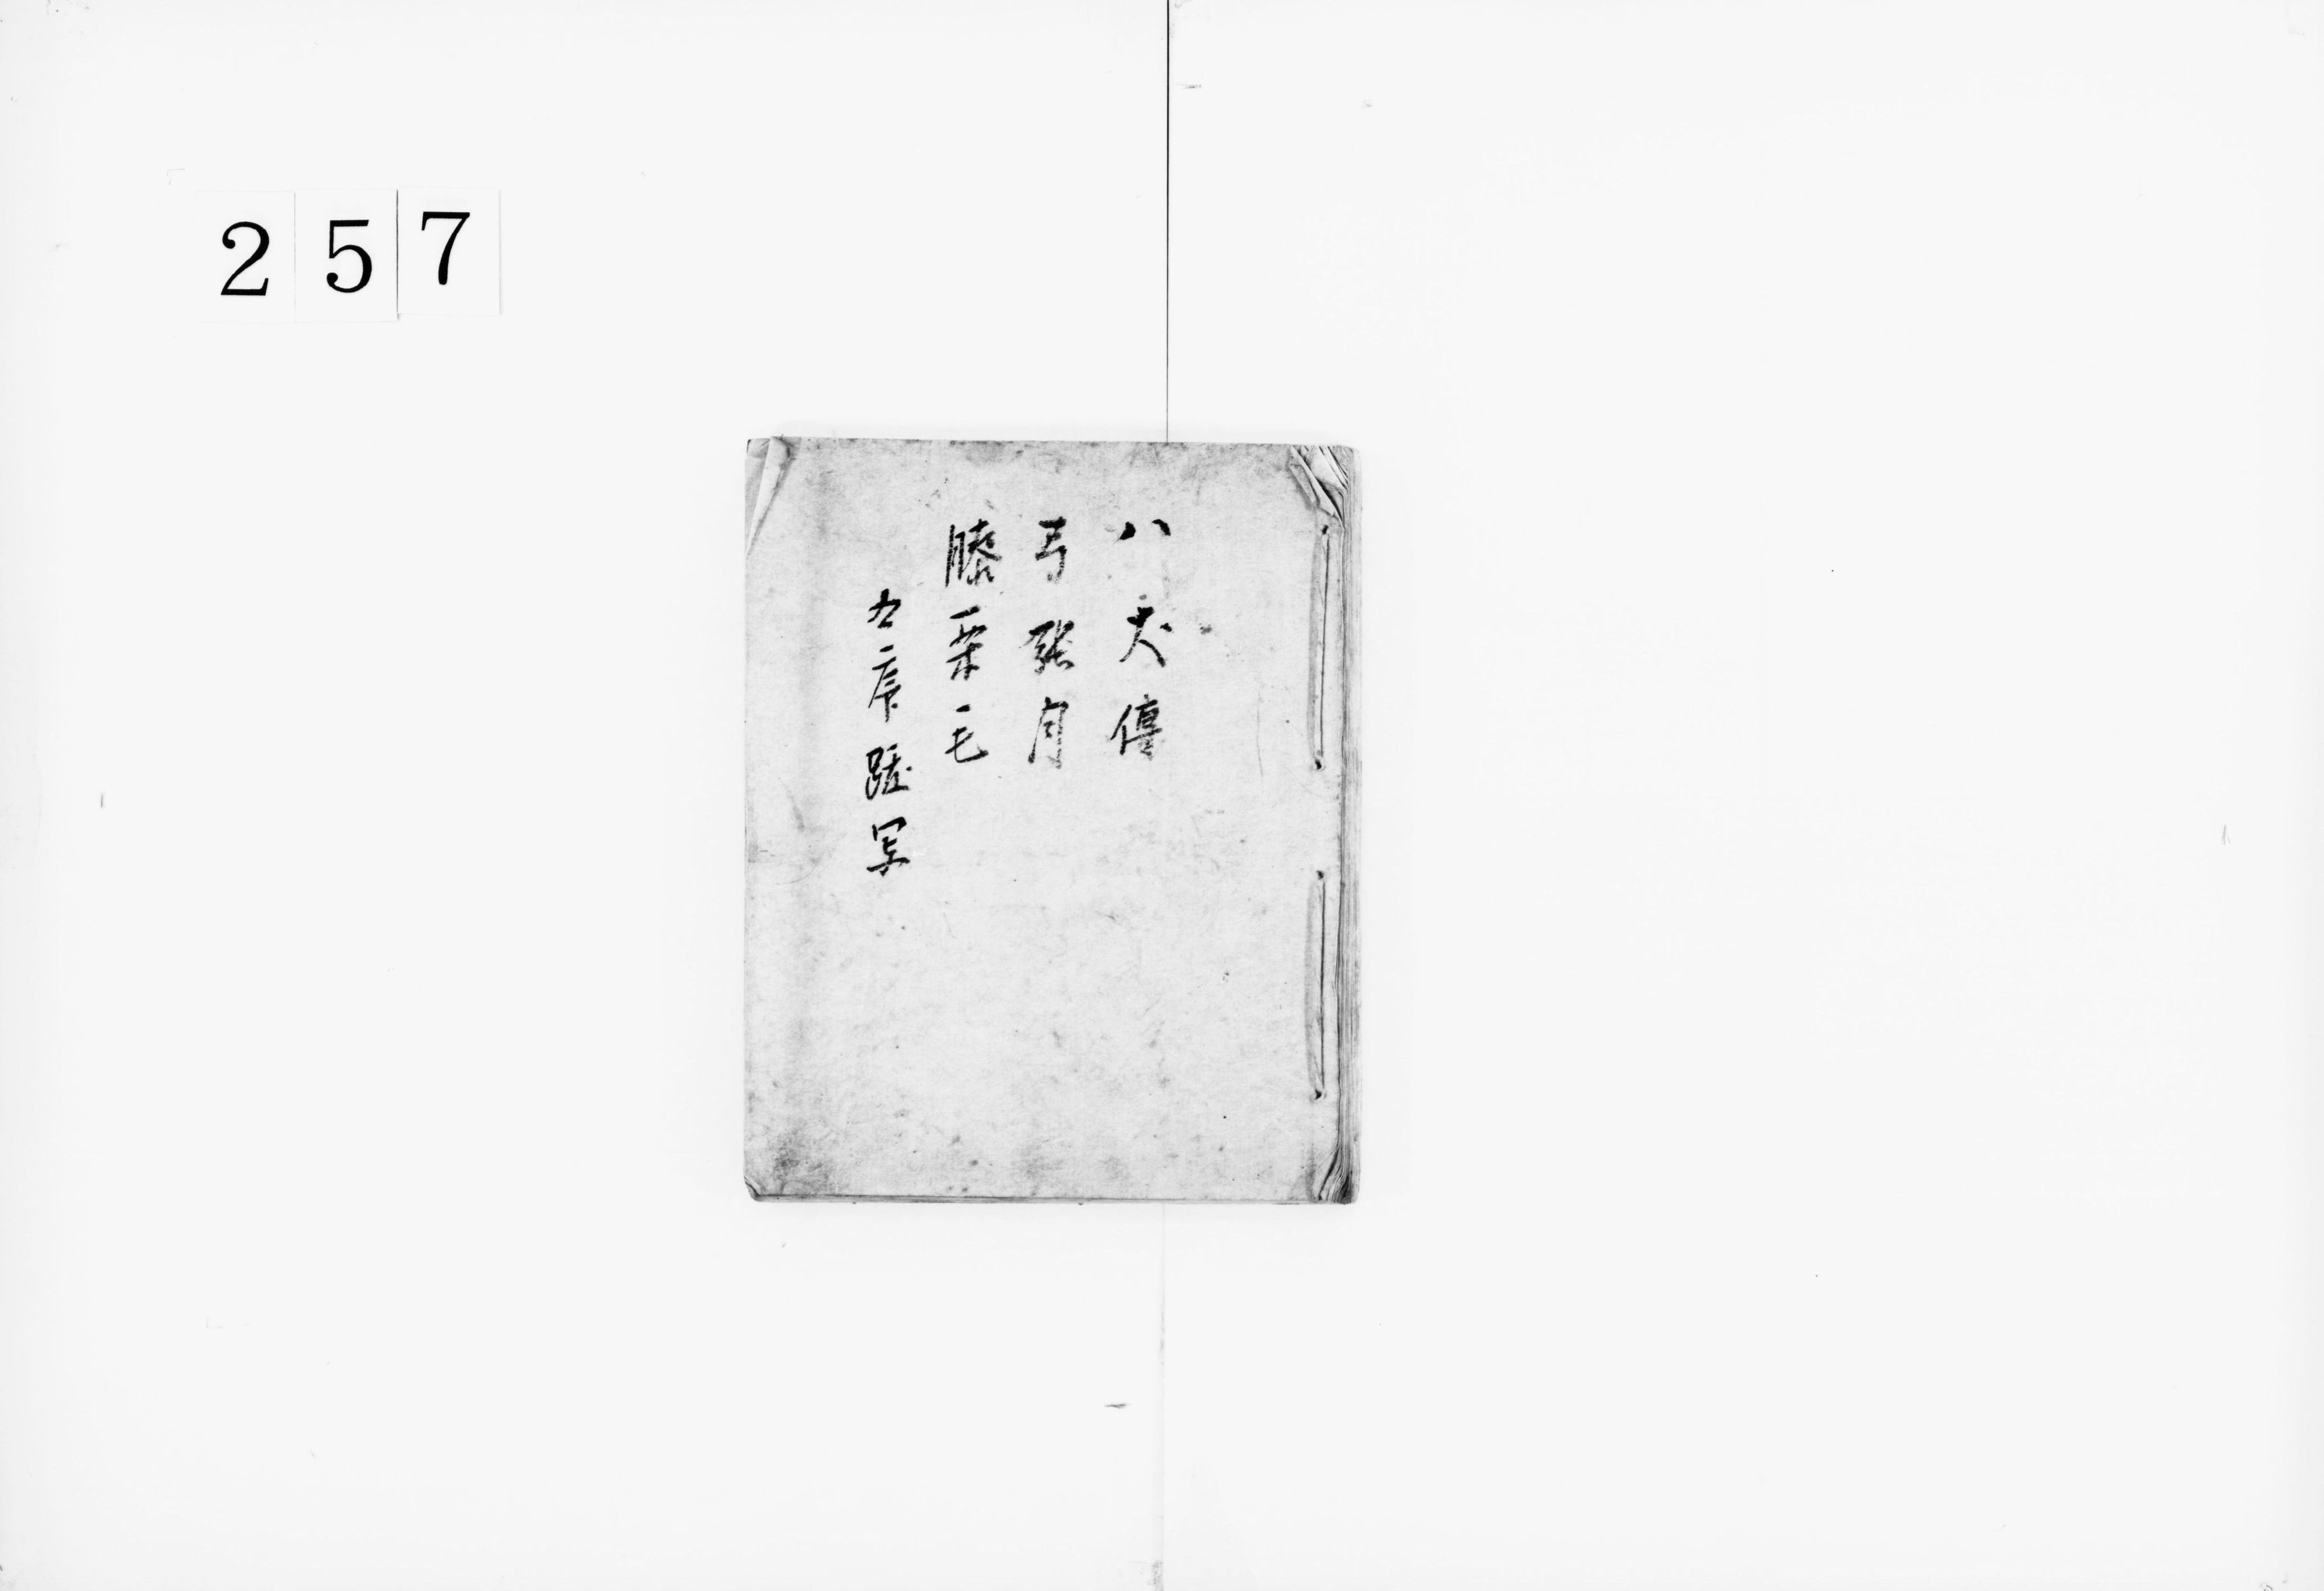 257
八犬傳
弓張月
膝栗毛
右序跋写